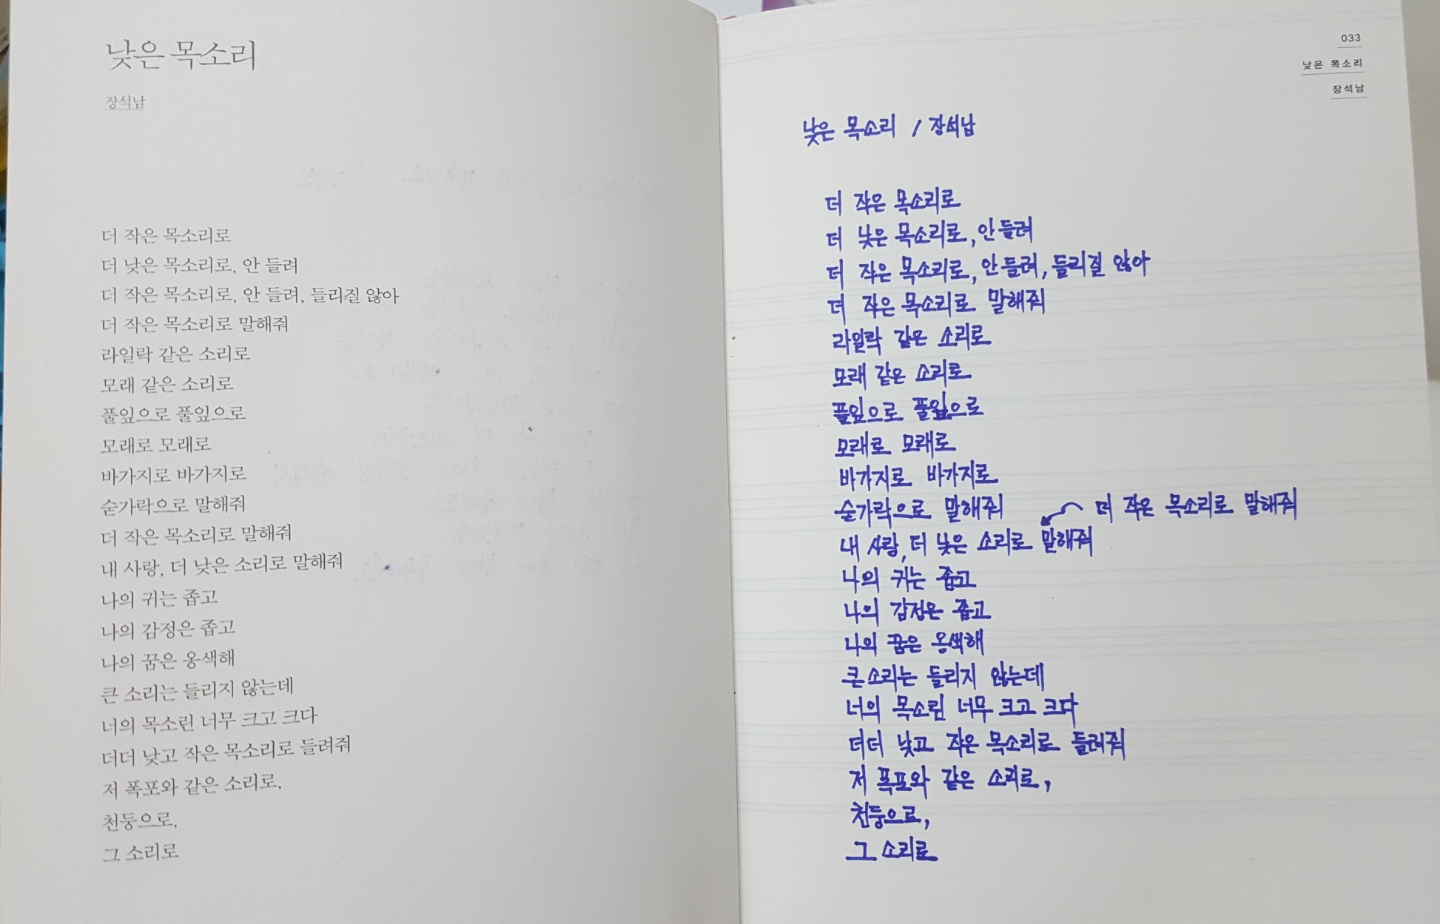 낮은 목소리
장석남
더 작은 목소리로
더 낮은 목소리로, 안 들려
더 작은 목소리로, 안 들려, 들리질 않아
더 작은 목소리로 말해줘
라일락 같은 소리로
모래 같은 소리로
풀잎으로 풀잎으로
모래로 모래로
바가지로 바가지로
숟가락으로 말해줘
더 작은 목소리로 말해줘
내 사랑, 더 낮은 소리로 말해줘
나의 귀는 좁고
나의 감정은 좁고
나의 꿈은 옹색해
큰 소리는 들리지 않는데
너의 목소린 너무 크고 크다
더더 낮고 작은 목소리로 들려줘
저 폭포와 같은 소리로,
천둥으로,
그 소리로
033
낮은 목소리
장석남
낮은 목소리 / 장석남
더 작은 목소리로
더 낮은 목소리로, 안 들려
더 작은 목소리로, 안 들려, 들리질 않아
더 작은 목소리로 말해줘
라일락 같은 소리로
모래 같은 소리로
풀잎으로 풀잎으로
모래로 모래로
바가지로 바가지로
숟가락으로 말해줘
더 작은 목소리로 말해줘
내 사랑, 더 낮은 소리로 말해줘
나의 귀는 좁고
나의 감정은 좁고
나의 꿈은 옹색해
큰 소리는 들리지 않는데
너의 목소린 너무 크고 크다
더더 낮고 작은 목소리로 들려줘
저 폭포와 같은 소리로,
천둥으로,
그 소리로